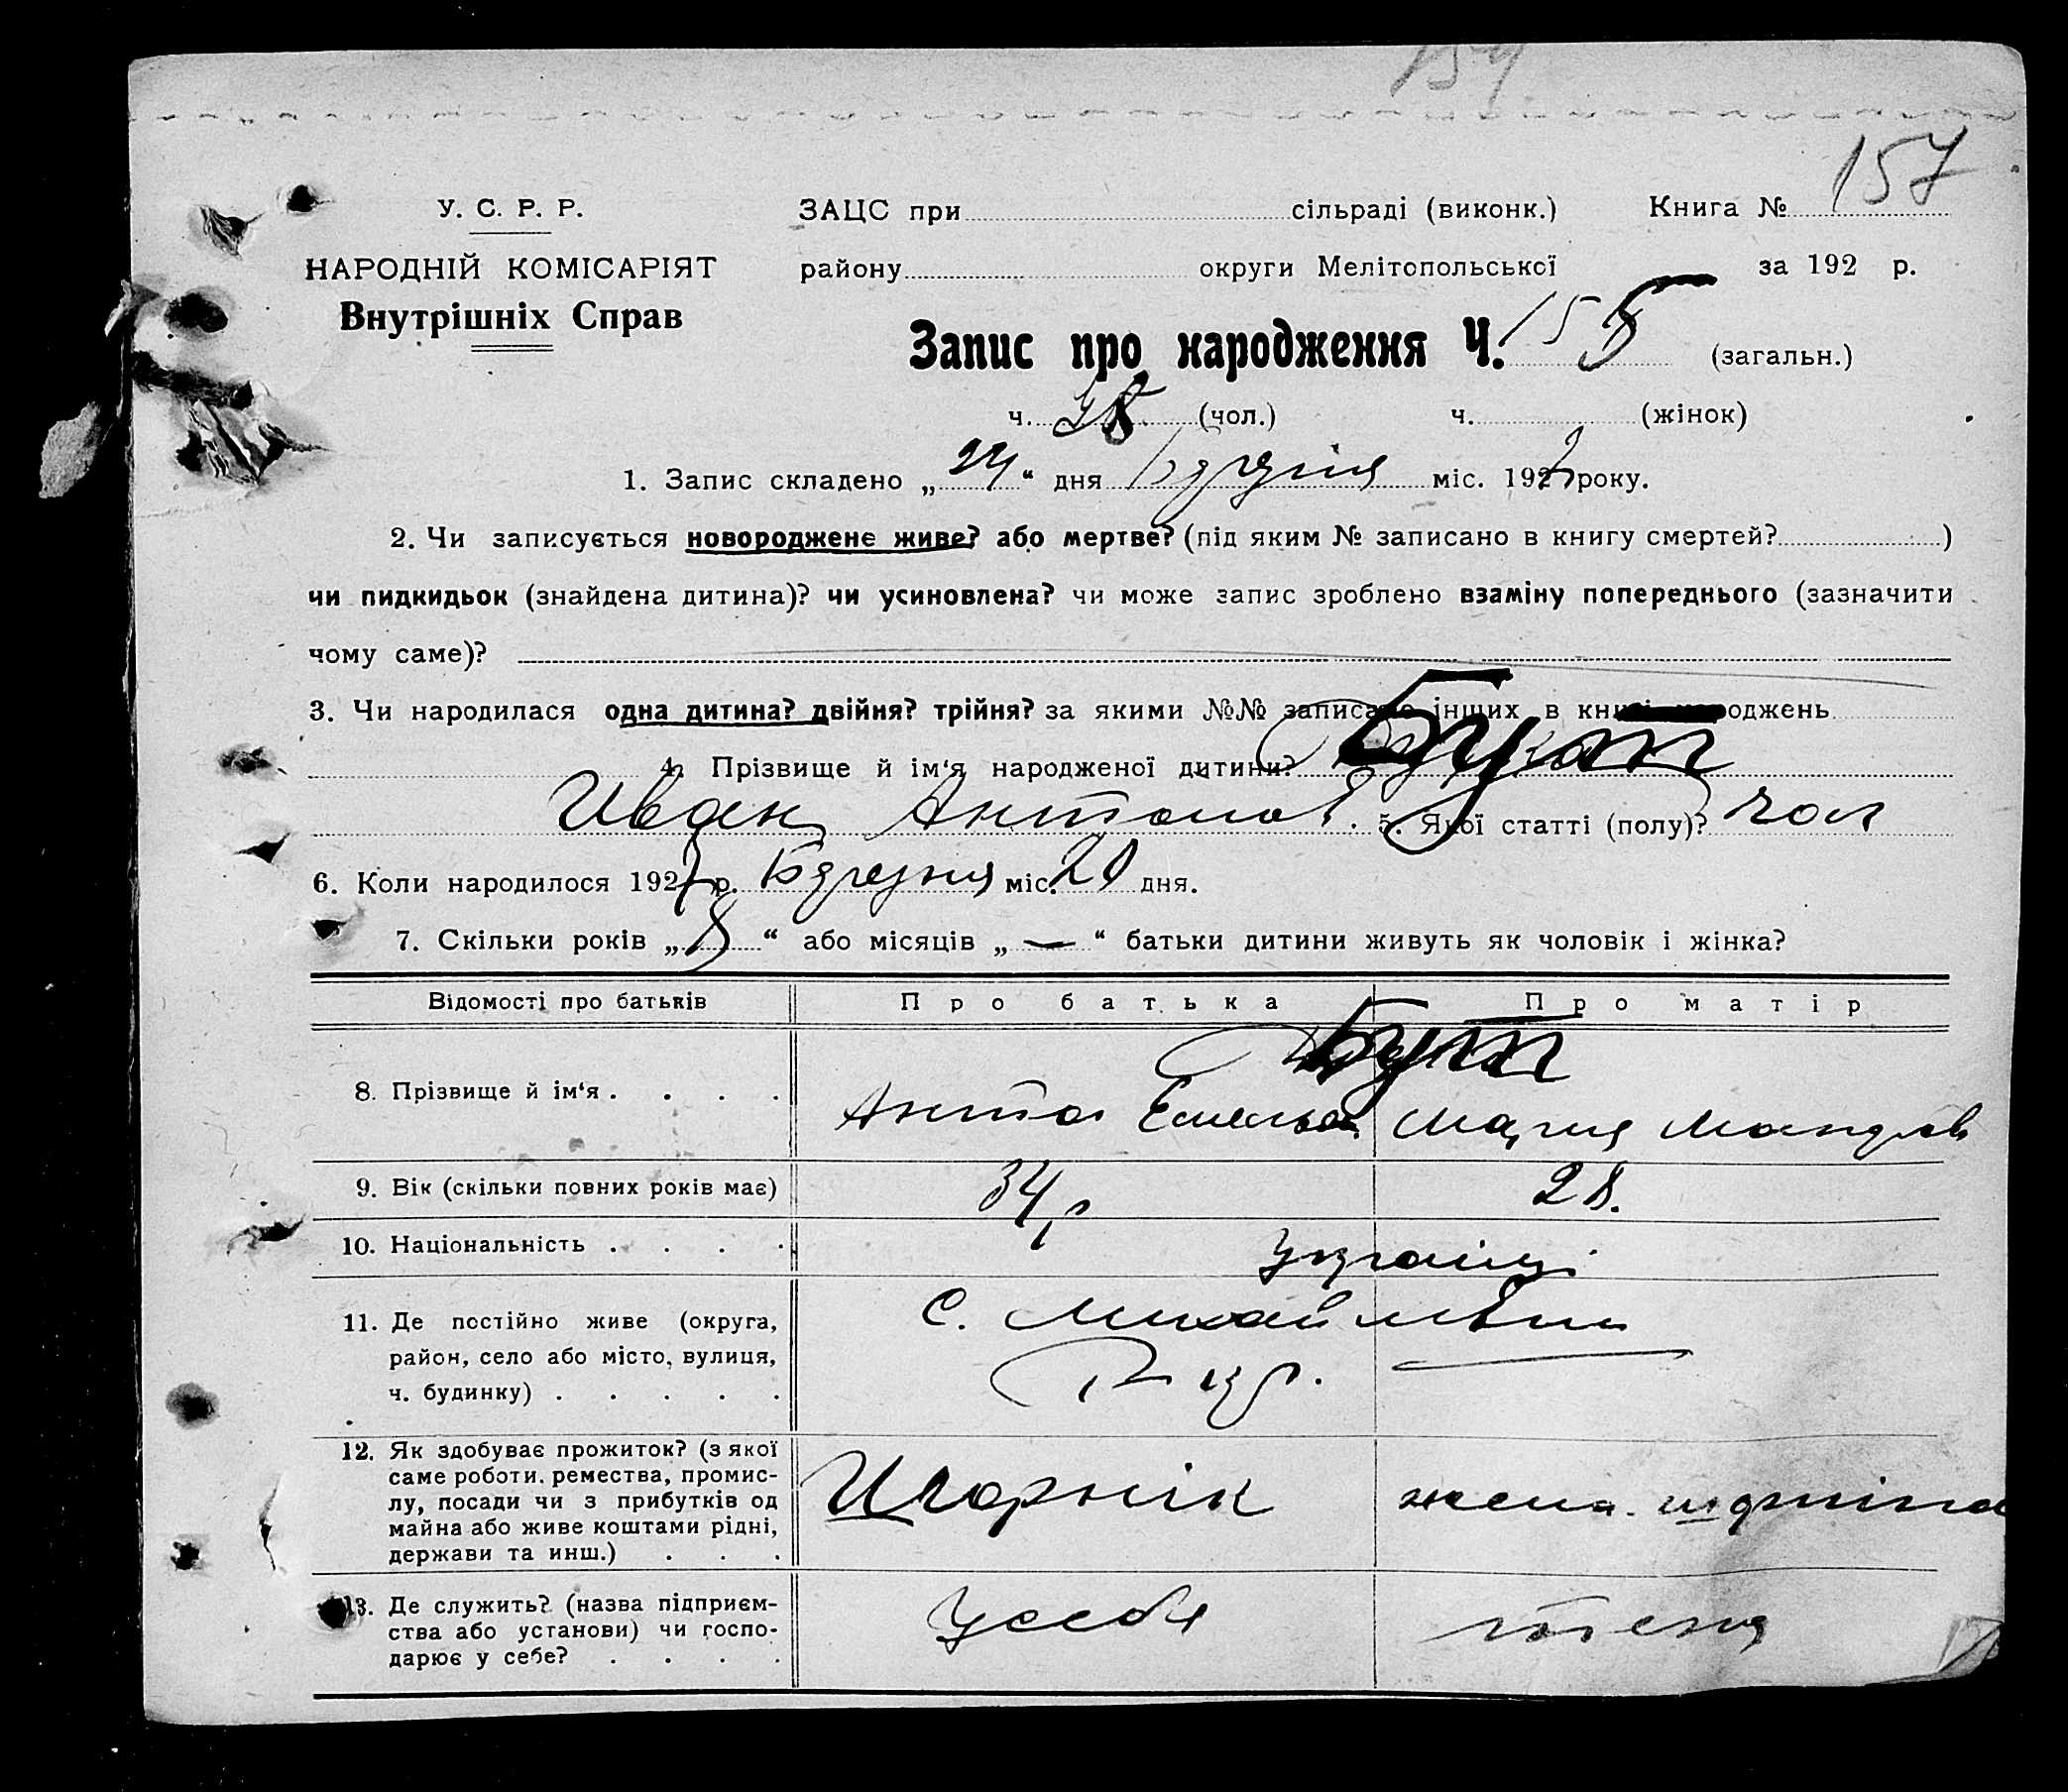 154
157
У. С. Р. Р.
НАРОДНІЙ КОМІСАРІЯТ
Внутрішніх Справ
ЗАЦС при сільраді (виконк.) Книга №
району округи Мелітопольської за 192 р.
Запис про народження Ч. 155 (загальн.)
ч. 78 (чол.) ч. (жінок)
1. Запис складено „24“ дня міс. 1927 року.
2. Чи записується новороджене живе? або мертве? (під яким № записано в книгу смертей? )
чи пидкидьок (знайдена дитина)? чи усиновлена? чи може запис зроблено взаміну попереднього (зазначити
чому саме)?
3. Чи народилася одна дитина? двійня? трійня? за якими №№ записано інших в книзі народжень
4. Прізвище й ім‘я народженої дитини?
Иван Антонов. 5. Якої статті (полу)? чол
6. Коли народилося 1927 р. Березня міс. 20 дня.
7. Скільки років „8“ або місяців „—“ батьки дитини живуть як чоловік і жінка?
Відомості про батьків Про батька Про матір
8. Прізвище й ім‘я . . . . Антон Емельян Мария
9. Вік (скільки повних років має) 34 р 28.
10. Національність . . . . Українці
11. Де постійно живе (округа, с. Михайлівка
район, село або місто, вулиця,
ч. будинку) . . . . .
12. Як здобуває прожиток? (з якої
саме роботи, ремества, промис-
лу, посади чи з прибутків од
майна або живе коштами рідні,
держави та инш.) . . . жена
13. Де служить? (назва підприєм-
ства або установи) чи госпо-
дарює у себе? . . . . У себе